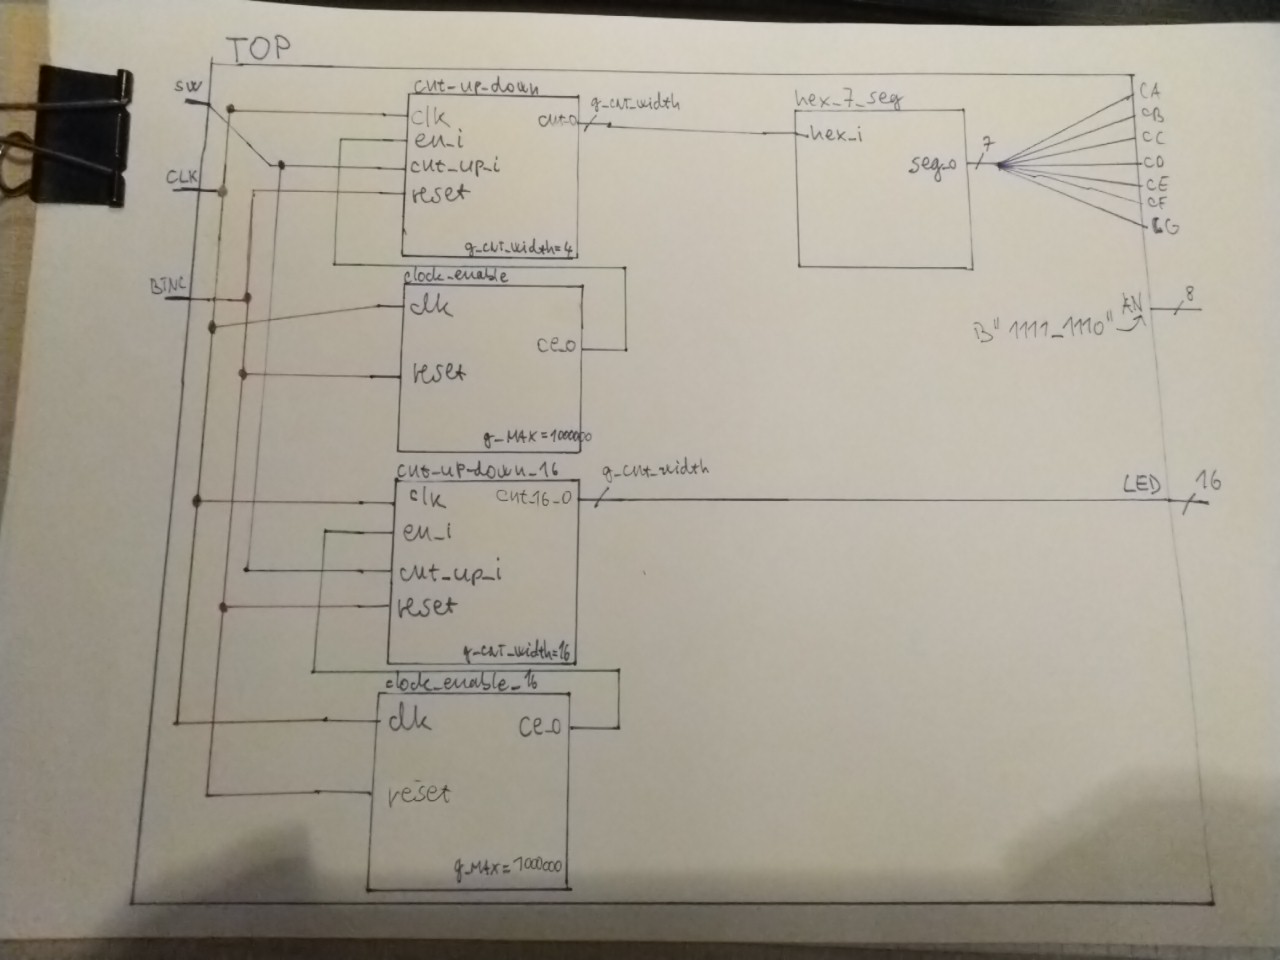 TOP
SW
CLK
BTNC
cnt_up_down
clk
en_i
cnt_up_i
reset
cnt_o
g_CNT_width=4
g_CNT_width
hex_7_seg
hex_i
seg_o
7
CA
CB
CC
CD
CE
CF
CG
AN
8
B"1111_1110"
clock_enable
clk
reset
ce_o
g_MAX=1000000
cnt_up_down_16
clk
en_i
cnt_up_i
reset
cnt_16_o
g_CNT_width=16
g_cnt_width
LED
16
clock_enable_16
clk
reset
ce_o
g_MAX=1000000